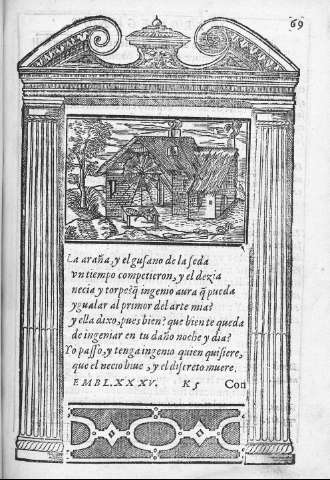 69
La araña, y el gusano de la seda
vn tiempo competieron, y el dezia
necia y torpe q̃ ingenio aura q̃ pueda
ygualar al primor del arte mia?
y ella dixo, pues bien? que bien te queda
de ingeniar en tu daño noche y dia?
Yo passo, y tenga ingenio quien quisiere,
que el necio biue, y el discreto muere.
EMBL. XXXV. K 5 Con